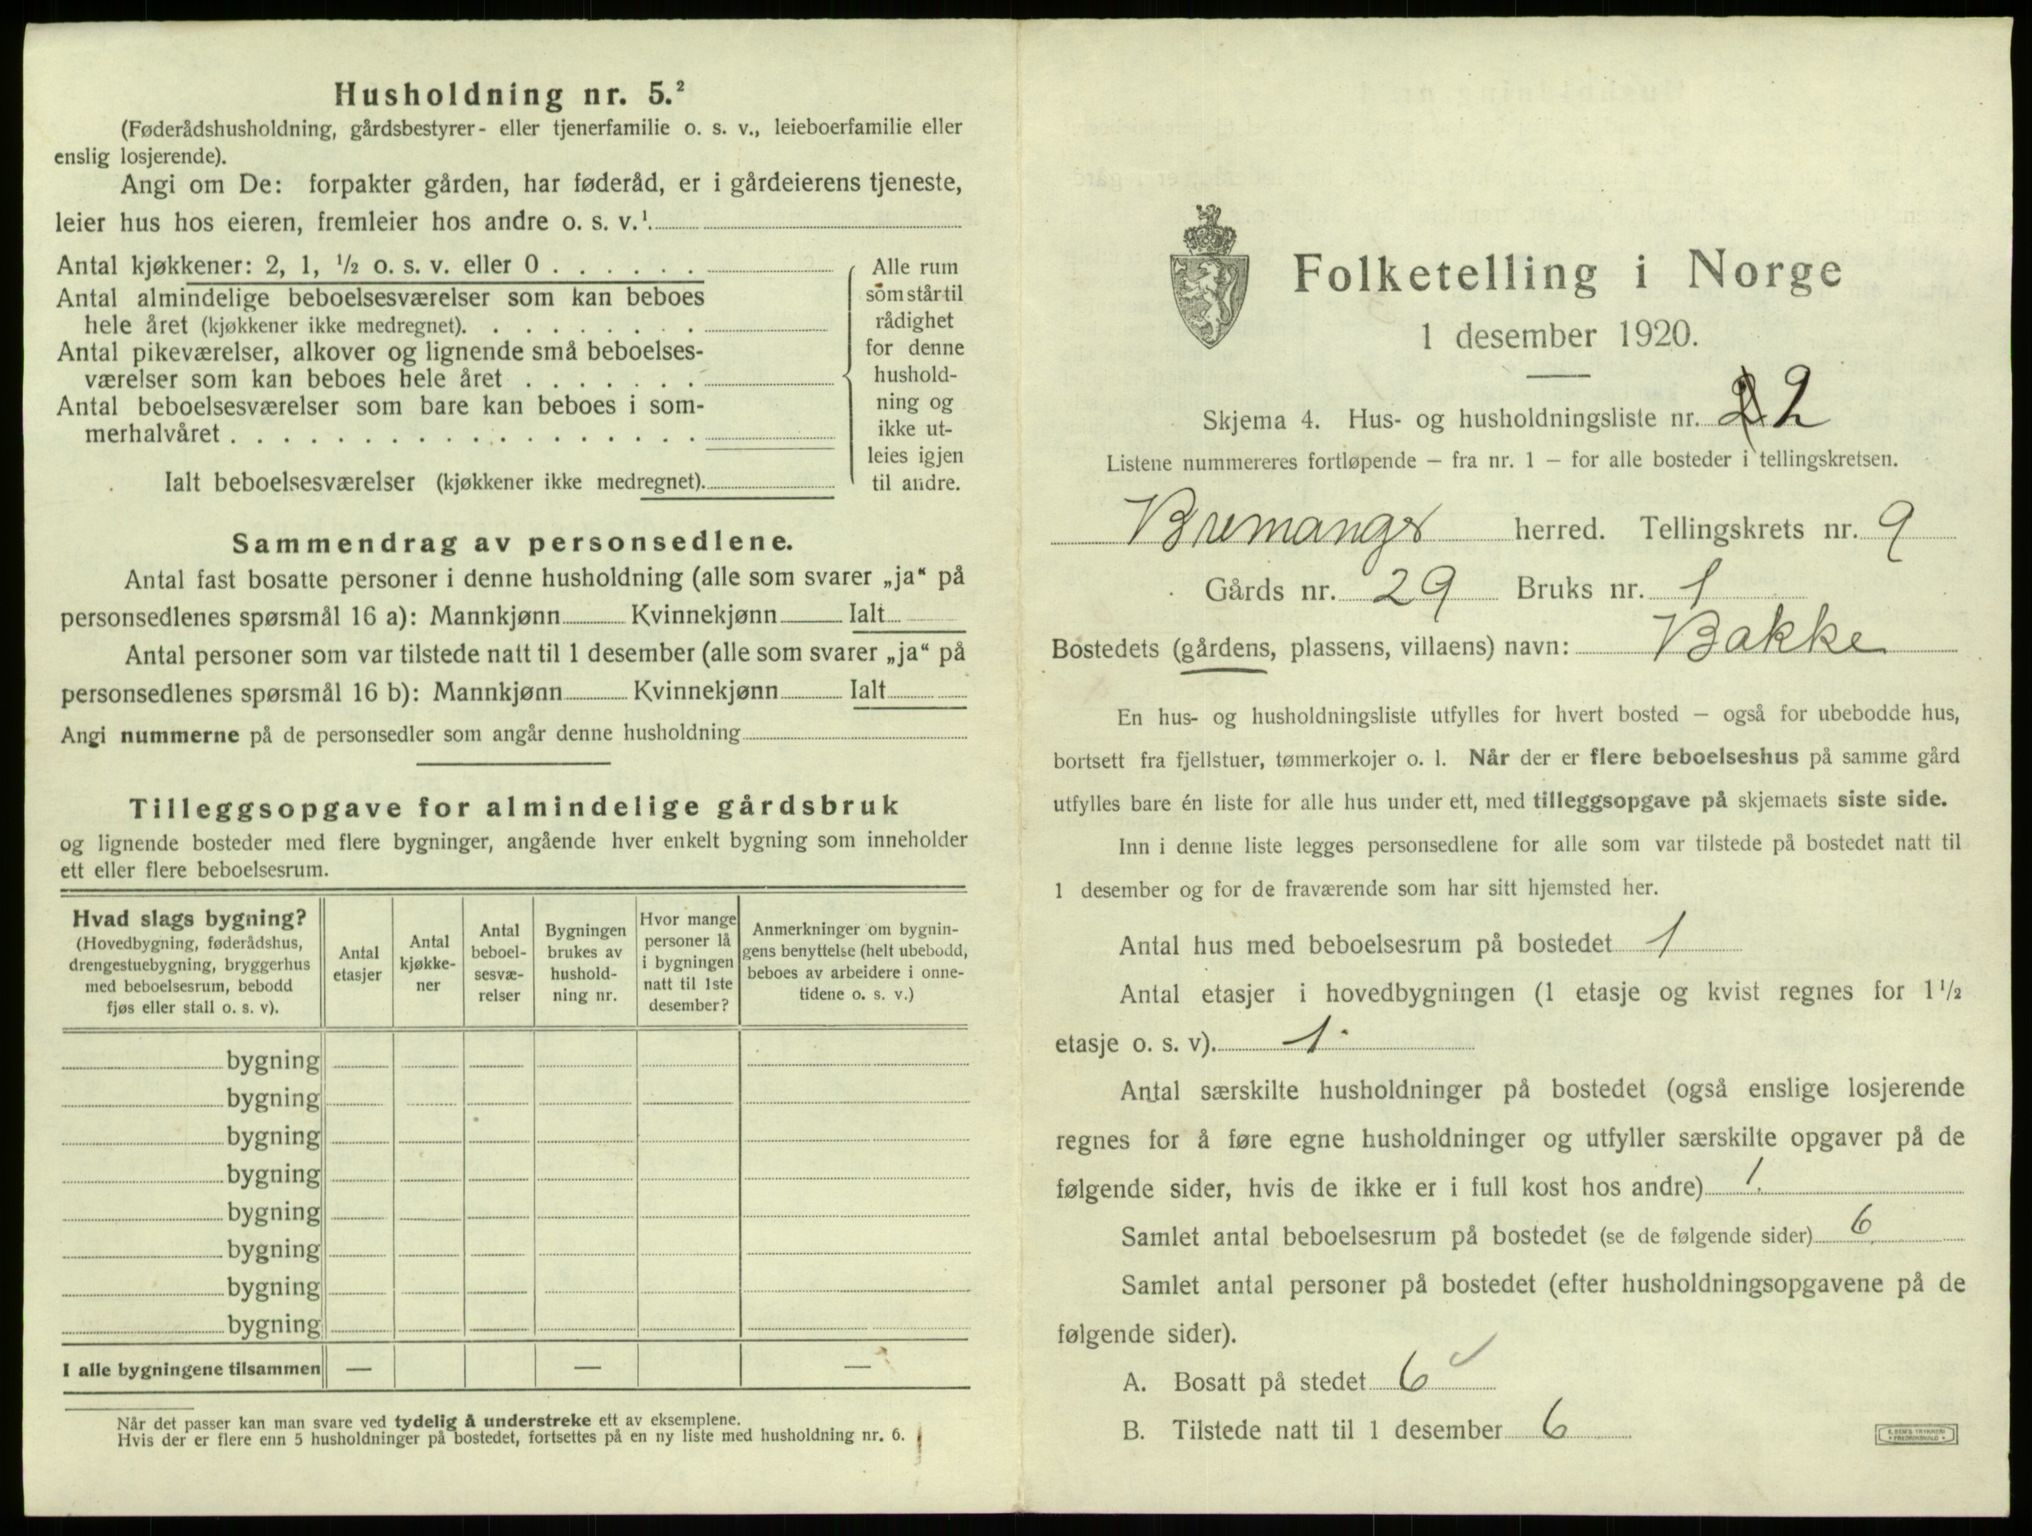 Husholdning nr. 5.²
(Føderådshusholdning, gårdsbestyrer- eller tjenerfamilie o. s. v., leieboerfamilie eller
enslig losjerende).
Angi om De: forpakter gården, har føderåd, er i gårdeierens tjeneste,
leier hus hos eieren, fremleier hos andre o. s. v.¹
Antal kjøkkener: 2, 1, ½ o. s. v. eller 0 . . . . . .
Antal almindelige beboelsesværelser som kan beboes
hele året (kjøkkener ikke medregnet). . . . . . . . .
Antal pikeværelser, alkover og lignende små beboelses-
værelser som kan beboes hele året . . . . . . .
Antal beboelsesværelser som bare kan beboes i som-
merhalvåret . . . . . . . . . . . . . . . . . .
Ialt beboelsesværelser (kjøkkener ikke medregnet).
Alle rum
som står til
rådighet
for denne
hushold-
ning og
ikke ut-
leies igjen
til andre.
Sammendrag av personsedlene.
Antal fast bosatte personer i denne husholdning (alle som svarer „ja“ på
personsedlenes spørsmål 16 a): Mannkjønn Kvinnekjønn Ialt
Antal personer som var tilstede natt til 1 desember (alle som svarer „ja“ på
personsedlenes spørsmål 16 b): Mannkjønn Kvinnekjønn Ialt
Angi nummerne på de personsedler som angår denne husholdning
Tilleggsopgave for almindelige gårdsbruk
og lignende bosteder med flere bygninger, angående hver enkelt bygning som inneholder
ett eller flere beboelsesrum.
Hvad slags bygning?
(Hovedbygning, føderådshus,
drengestuebygning, bryggerhus
med beboelsesrum, bebodd
fjøs eller stall o. s. v).
Antal
etasjer
Antal
kjøkke-
ner
Antal
beboel-
sesvæ-
relser
Bygningen
brukes av
hushold-
ning nr.
Hvor mange
personer lå
i bygningen
natt til 1ste
desember?
Anmerkninger om bygnin-
gens benyttelse (helt ubebodd,
beboes av arbeidere i onne-
tidene o. s. v.)
bygning
bygning
bygning
bygning
bygning
bygning
bygning
bygning
I alle bygningene tilsammen — — —
Når det passer kan man svare ved tydelig å understreke ett av eksemplene.
Hvis der er flere enn 5 husholdninger på bostedet, fortsettes på en ny liste med husholdning nr. 6.
Folketelling i Norge
1 desember 1920.
Skjema 4. Hus- og husholdningsliste nr. 2
Listene nummereres fortløpende — fra nr. 1 — for alle bosteder i tellingskretsen.
Bremanger herred. Tellingskrets nr. 9
Gårds nr. 29 Bruks nr. 1
Bostedets (gårdens, plassens, villaens) navn: Bakke
En hus- og husholdningsliste utfylles for hvert bosted — også for ubebodde hus,
bortsett fra fjellstuer, tømmerkojer o. l. Når der er flere beboelseshus på samme gård
utfylles bare én liste for alle hus under ett, med tilleggsopgave på skjemaets siste side.
Inn i denne liste legges personsedlene for alle som var tilstede på bostedet natt til
1 desember og for de fraværende som har sitt hjemsted her.
Antal hus med beboelsesrum på bostedet 1
Antal etasjer i hovedbygningen (1 etasje og kvist regnes for 1½
etasje o. s. v). 1
Antal særskilte husholdninger på bostedet (også enslige losjerende
regnes for å føre egne husholdninger og utfyller særskilte opgaver på de
følgende sider, hvis de ikke er i full kost hos andre) 1.
Samlet antal beboelsesrum på bostedet (se de følgende sider) 6
Samlet antal personer på bostedet (efter husholdningsopgavene på de
følgende sider).
A. Bosatt på stedet 6 ✓
B. Tilstede natt til 1 desember 6